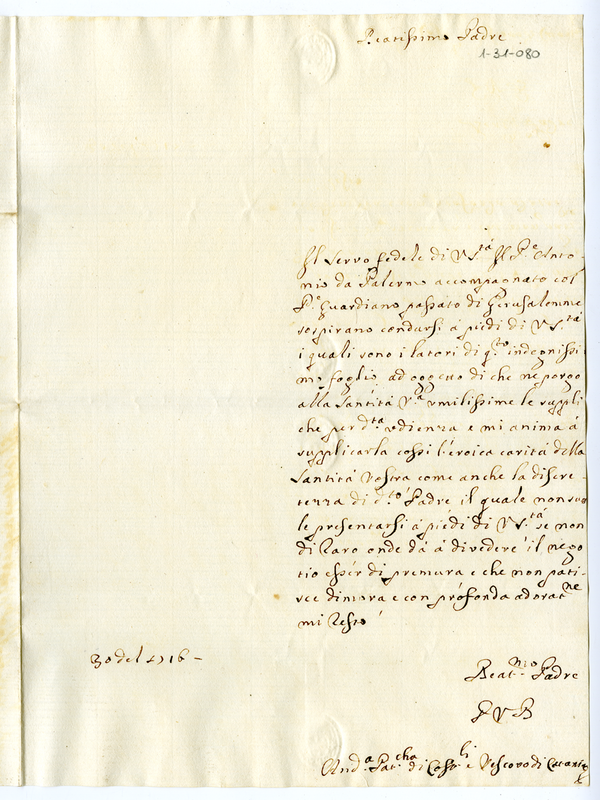 Beatissimo Padre
1-31-080
Il servo fedele di V.S.tà Il P.e Anto-
nio da Palermo accompagnato col
P.e Guardiano passato di Gerusalemme
sospirano condursi á piedi di V.S.tà
i quali sono i latori di q.to indegnissi
mo foglio, ad oggetto di che ne porgo
alla Santità V.a umilissime le suppli
che per d.ta udienza e mi anima á
supplicarla cossì l'eroica carità della
Santità Vostra come anche la discre-
tezza di d.to Padre il quale non suo
le presentarsi á piedi di V.S.tà se non
di raro onde dá á divedere il nego
tio essér di premura e che non pati-
sce dimora e con profonda adorat.ne
mi resto
30 del 1716 -
Beat.mo Padre
And.a Pat.cha di Cost.li e Vescovo di Catania